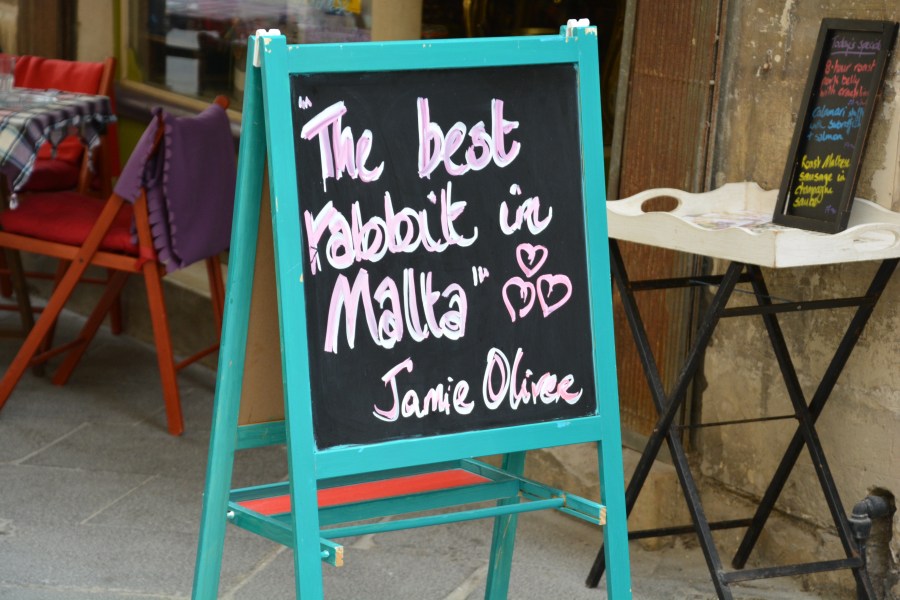 "The best
rabbit in
Malta"
Jamie Oliver
Today's special
8-hour roast
pork belly
with
Calamari
with
salmon
Roast Maltese
sausage in
champagne
sauce